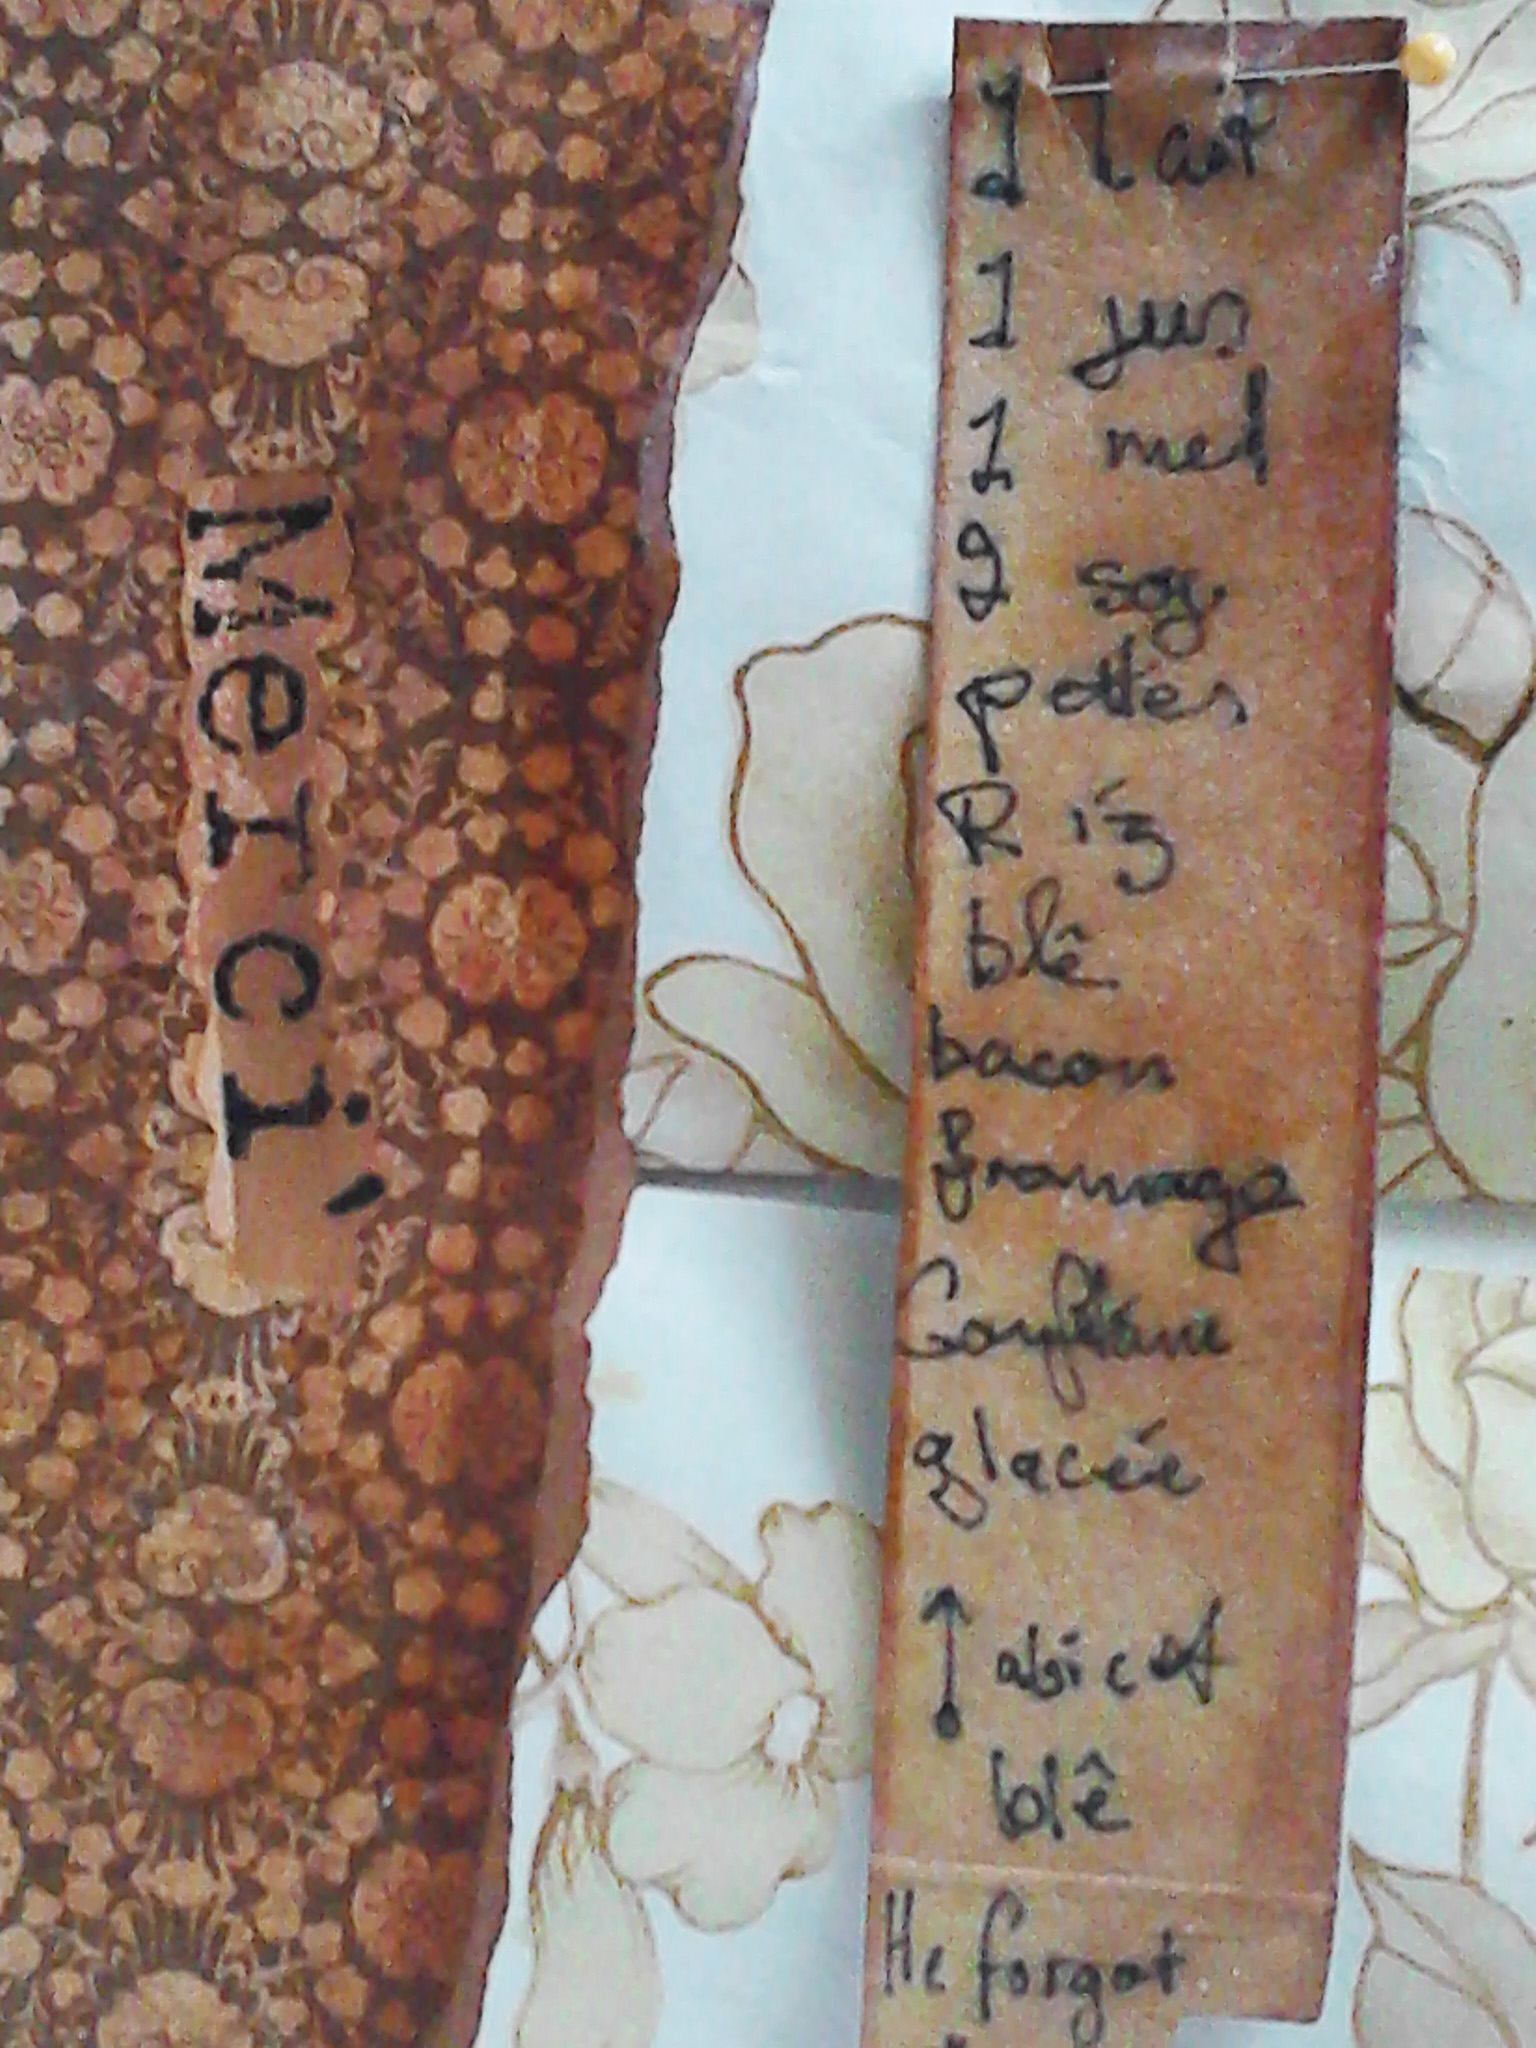 Merci'
1 Lait
1 jus
1 mel
2 soy.
pattes
Riz
blê
bacon
fromage
Confiture
glacée
↑ abicot
blê
He forgot